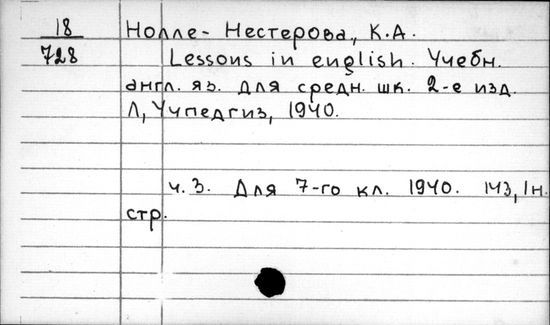 18 Нолле-Нестерова, К.А.
728 Lessons in english. Учебн.
англ. яз. для средн. шк. 2-е изд.
Л, Учпедгиз, 1940.
ч. 3. Для 7-го кл. 1940. 143, 1н.
стр.